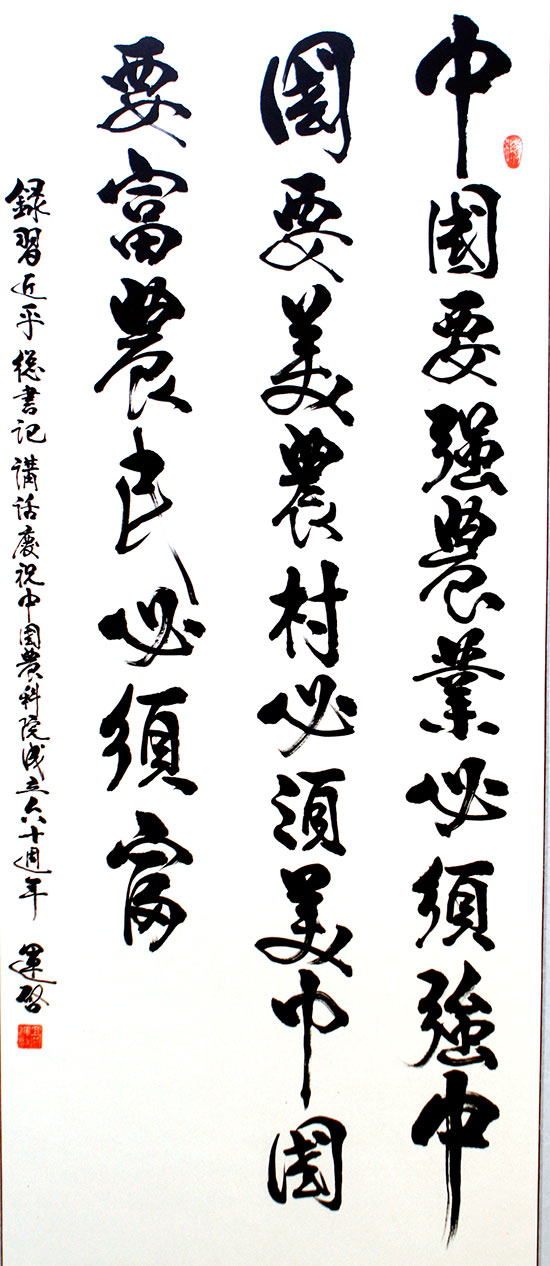 中國要强農業必須強中
國要美農村必須美中國
要富農民必須富
録習近平總書記講話慶祝中國農科院成立六十週年 運啓